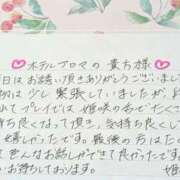 ♡ホテルアロマの貴方様♡
日はお誘い頂きありがとうございまし
初は少し緊張していましたが、
てプレイでは、姫咲の舌でたくさ
持ち良くなって頂き、気持ち良くし
嬉しかったです。最後の方はたの
色んなお話しができて良かったで
お待ちしております。